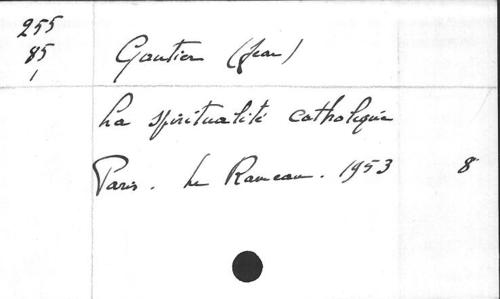 255
85
1
Gautier (Jean)
La spiritualité catholique
Paris. Le Rameau. 1953 8